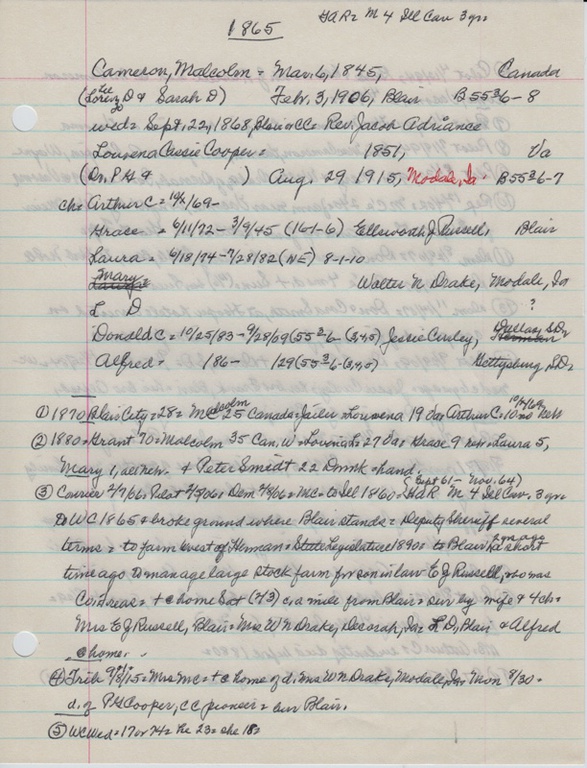 1865
GAR= M 4 Ill Cav 3 yrs
Cameron, Malcolm = Mar. 6, 1845, Canada
(Lorenzo D & Sarah D) Feb. 3, 1906, Blair B 55 3 6-8
wed = Sept. 22, 1868, Blair CC = Rev. Jacob Adriance
Louvena Cissie Cooper = 1851, Va
(Dr. P H & ) Aug. 29 1915, Modale, Ia. B 55 3 6-7
ch = Arthur C = 10/ /69-
Grace = 6/11/72 - 3/9/45 (161-6) Ellsworth J Russell, Blair
Laura = 6/18/74 - 7/28/82 (NE) 8-1-10
Mary Walter N Drake, Modale, Ia
L D ?
Donald C = 10/25/83 - 9/28/09 (55 3 6 - (3,4,5) Jessie Curley, Dallas, S.D.
Alfred = 186 - 129 (55 3 6 - (3,4,5) Gettysburg, S.D.
① 1870 Blair City = 28 = Malcolm 25 Canada = Louvena 19 Va = Arthur C. 10/12 Neb
② 1880 = Grant 70 = Malcolm 35 Can. W = Lovenia L 27 Va = Grace 9 Laura 5,
Mary 1, all Neb. & Peter Smidt 22 Dnmk = hand.
(Sept 61 - Nov. 64)
③ Courier 2/7/06 Pilot 2/ /06 = Dem 2/8/06 = Mc = to Ill 1860 = GAR M 4 Ill Cav. 3 yrs
to WC 1865 & broke ground where Blair stands = Deputy Sheriff several
terms = to farm west of Herman = State Legislature 1890 = to Blair a short
time ago to manage large stock farm for son in law E J Russell,
Co = + @ home Sat (2/3) a mile from Blair = sur by wife & 4 ch =
Mrs E J Russell, Blair = Mrs W N Drake, Decorah, Ia = L D, Blair & Alfred
@ home.
④ Trib 9/8/15 = Mrs Mc = + @ home of d. Mrs W N Drake, Modale, Ia. Mon 8/30 =
d. of P H Cooper, CC pioneer = bur Blair.
⑤ WC Wed = 17 or 74 = he 23 = she 18 =